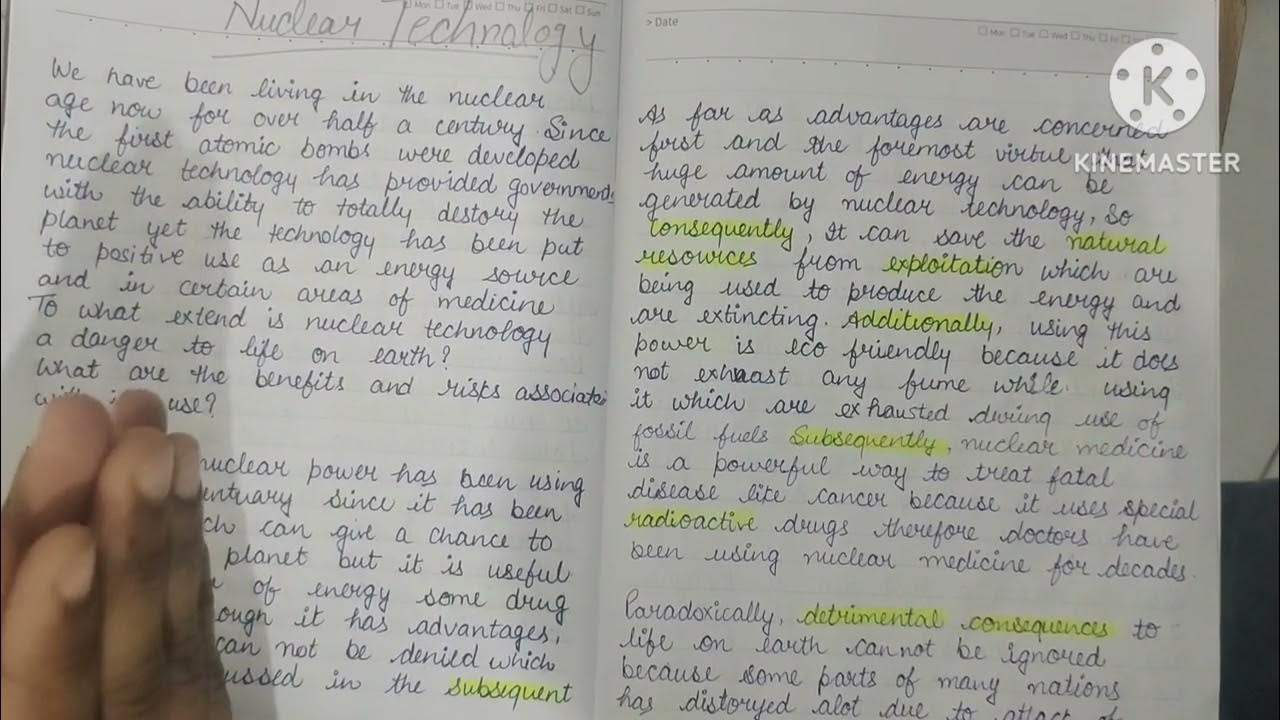 Mon Tue Wed Thu Fri Sat Sun
Nuclear Technology
We have been living in the nuclear
age now for over half a century. Since
the first atomic bombs were developed
nuclear technology has provided governments
with the ability to totally destory the
planet yet the technology has been put
to positive use as an energy source
and in certain areas of medicine
To what extend is nuclear technology
a danger to life on earth?
What are the benefits and risks
use?
nuclear power has been using
since it has been
can give a chance to
planet but it is useful
of energy some drug
it has advantages,
can not be denied which
in the subsequent
> Date
Mon Tue Wed Thu Fri
As far as advantages are concerned
first and the foremost virtue
huge amount of energy can be
generated by nuclear technology, So
Consequently, it can save the natural
resources from exploitation which are
being used to produce the energy and
are extincting. Additionally, using this
power is eco friendly because it does
not exhaast any fume while using
it which are exhausted during use of
fossil fuels Subsequently, nuclear medicine
is a powerful way to treat fatal
disease like cancer because it uses special
radioactive drugs therefore doctors have
been using nuclear medicine for decades.
Paradoxically, detrimental consequences to
life on earth cannot be ignored
because some parts of many nations
has distoryed alot due to
K
KINEMASTER